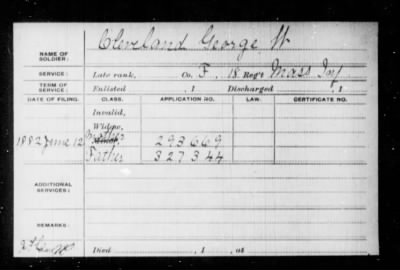 NAME OF SOLDIER: Cleveland George W
SERVICE: Late rank, Co. F, 18 Reg't Mass Inf
TERM OF SERVICE: Enlisted , 1 Discharged , 1
DATE OF FILING. CLASS. APPLICATION NO. LAW. CERTIFICATE NO.
Invalid,
Widow,
1882 June 12 Mother 293669
Father 327344
ADDITIONAL SERVICES:
REMARKS:
Died , 1 , at